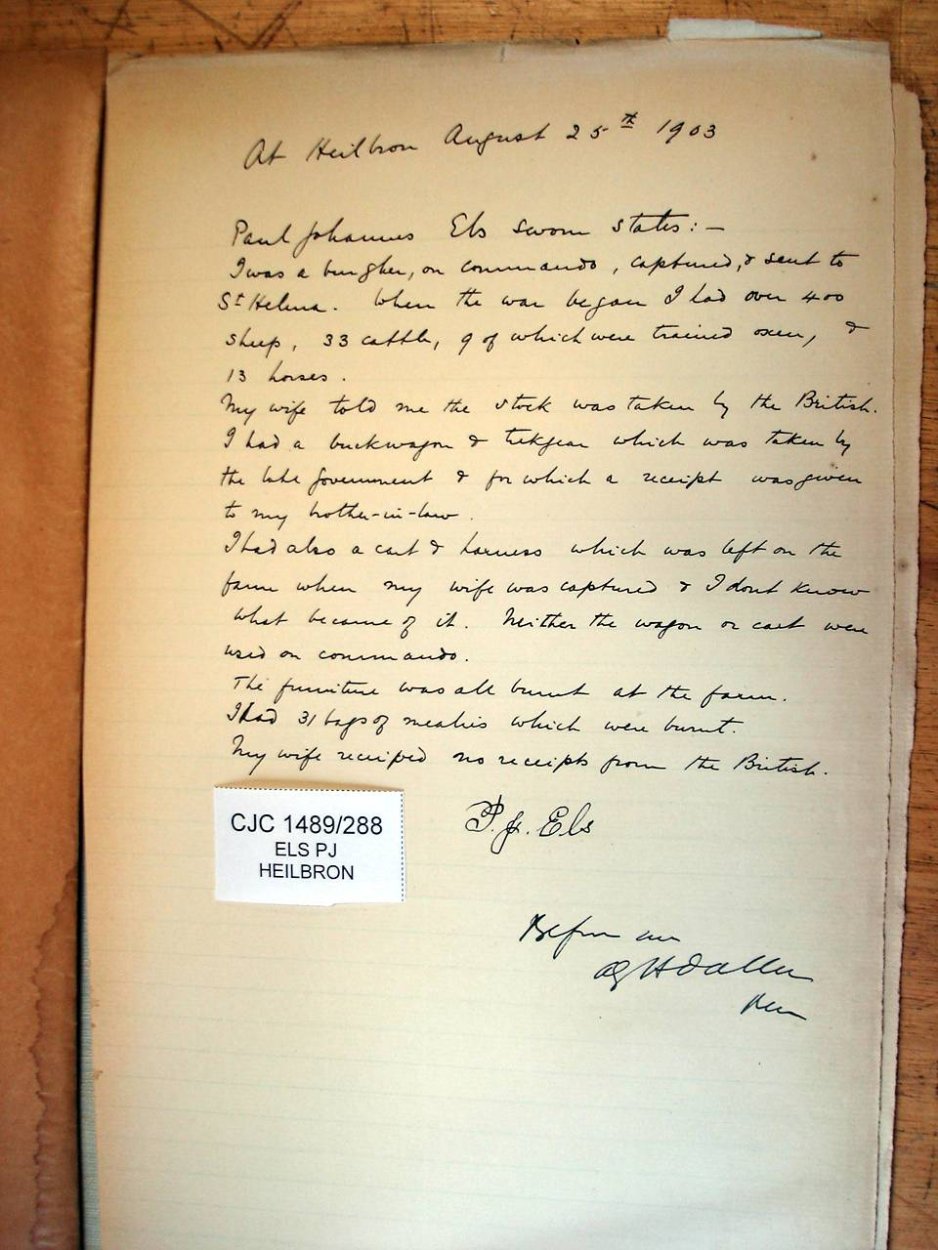 At Heilbron August 25th 1903
Paul Johannes Els sworn states:—
I was a burgher, on commando, captured, & sent to
St Helena. When the war began I had over 400
sheep, 33 cattle, 9 of which were trained oxen, &
13 horses.
My wife told me the stock was taken by the British.
I had a buckwagon & trekgear which was taken by
the late Government & for which a receipt was given
to my brother-in-law.
I had also a cart & harness which was left on the
farm when my wife was captured & I dont know
what became of it. Neither the wagon or cart were
used on commando.
The furniture was all burnt at the farm.
I had 31 bags of mealies which were burnt.
My wife receiped no receipts from the British.
P. J. Els
CJC 1489/288
ELS PJ
HEILBRON
Before me